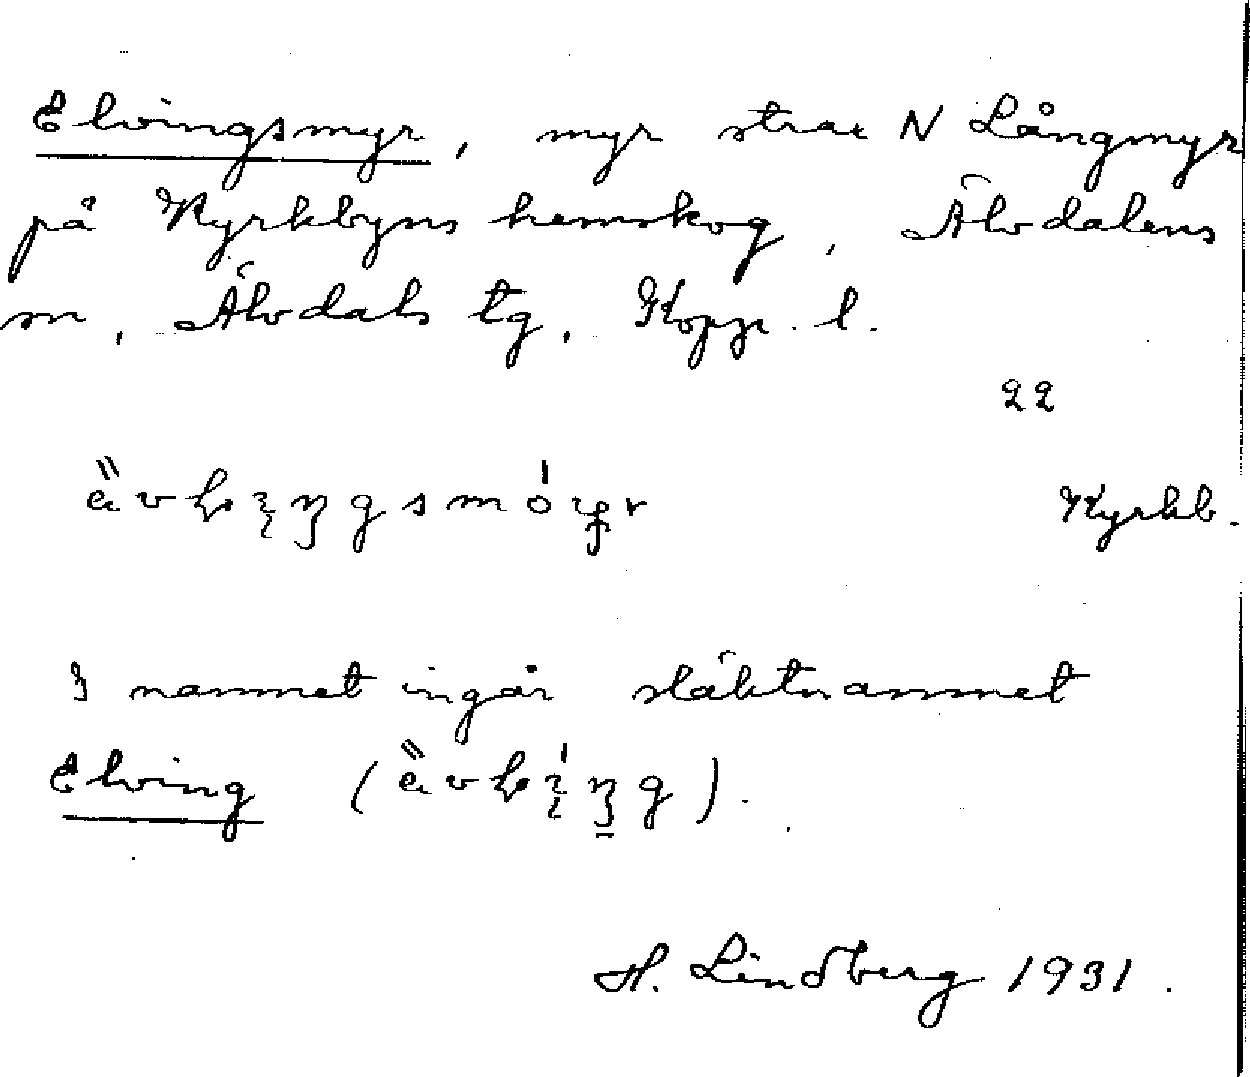 Elvingsmyr, myr strax N Långmyr
på Kyrkbyns hemskog, Älvdalens
sn, Älvdals tg, Kopp. l.
22
Kyrkb.
I namnet ingår släktnamnet
Elving
H. Lindberg 1931.